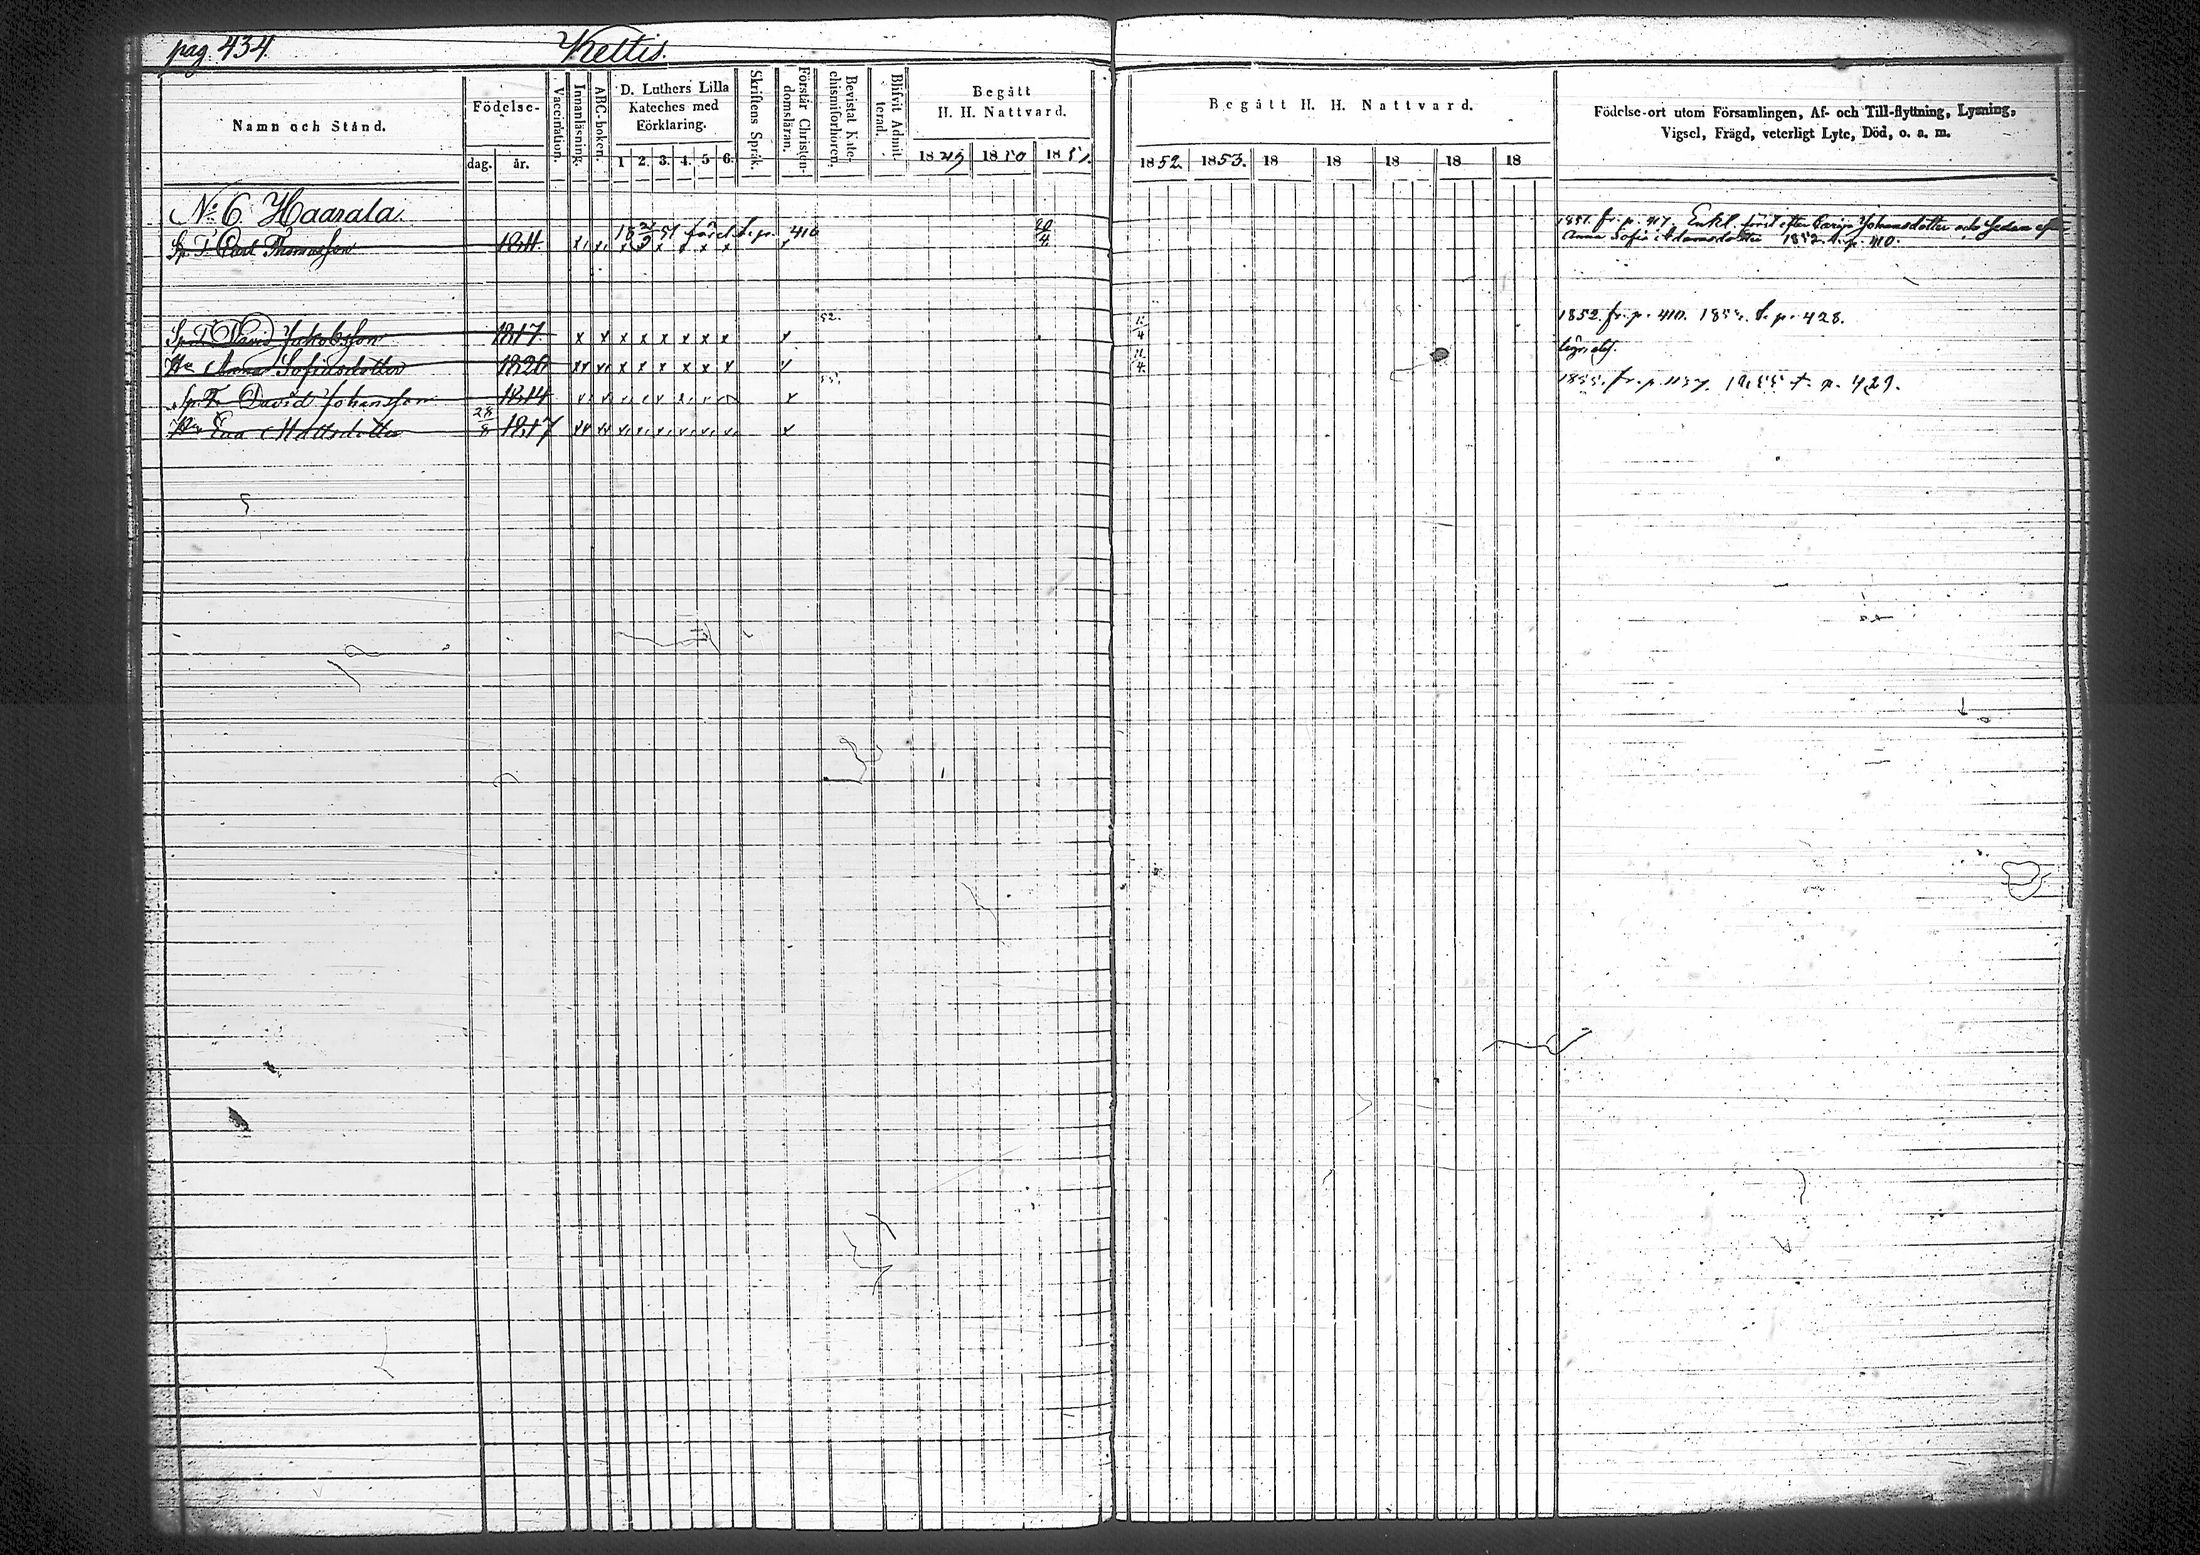 pag. 434.
Kettis.
Namn och Stånd.
Födelse-
dag. år.
Vaccination.
Innanläsning.
ABC-boken.
D. Luthers Lilla
Kateches med
Förklaring.
1 2. 3. 4. 5 6.
Skriftens Språk.
Förstår Christen-
domsläran.
Bevistat Kate-
chismiförhören.
Blifvit Admit-
terad.
Begått
H. H. Nattvard.
1849 1850 1851
Begått H. H. Nattvard.
1852. 1853. 18 18 18 18 18
Födelse-ort utom Församlingen, Af- och Till-flyttning, Lysning,
Vigsel, Frägd, veterligt Lyte, Död, o. a. m.
No 6 Haarala.
Sp. T. Carl Thomasson 1811 x x x x x x x
20/4
1851. fr. p. 417. Enkl. först efter Carin Johansdotter och sedan efter
Anna Sofia Adamsdotter 1852. t. p. 410.
52.
Sp. T. David Jakobsson 1817. x x x x x x x x x
1852. fr. p. 410. t. p. 428.
Hu Anna Sofiasdotter 1820 x x x x x x x
55.
Sp. T. David Johansson 1814
1855. fr. p. 1855 t. p. 429.
Hu Eva Mattsdotter 28/8 1817